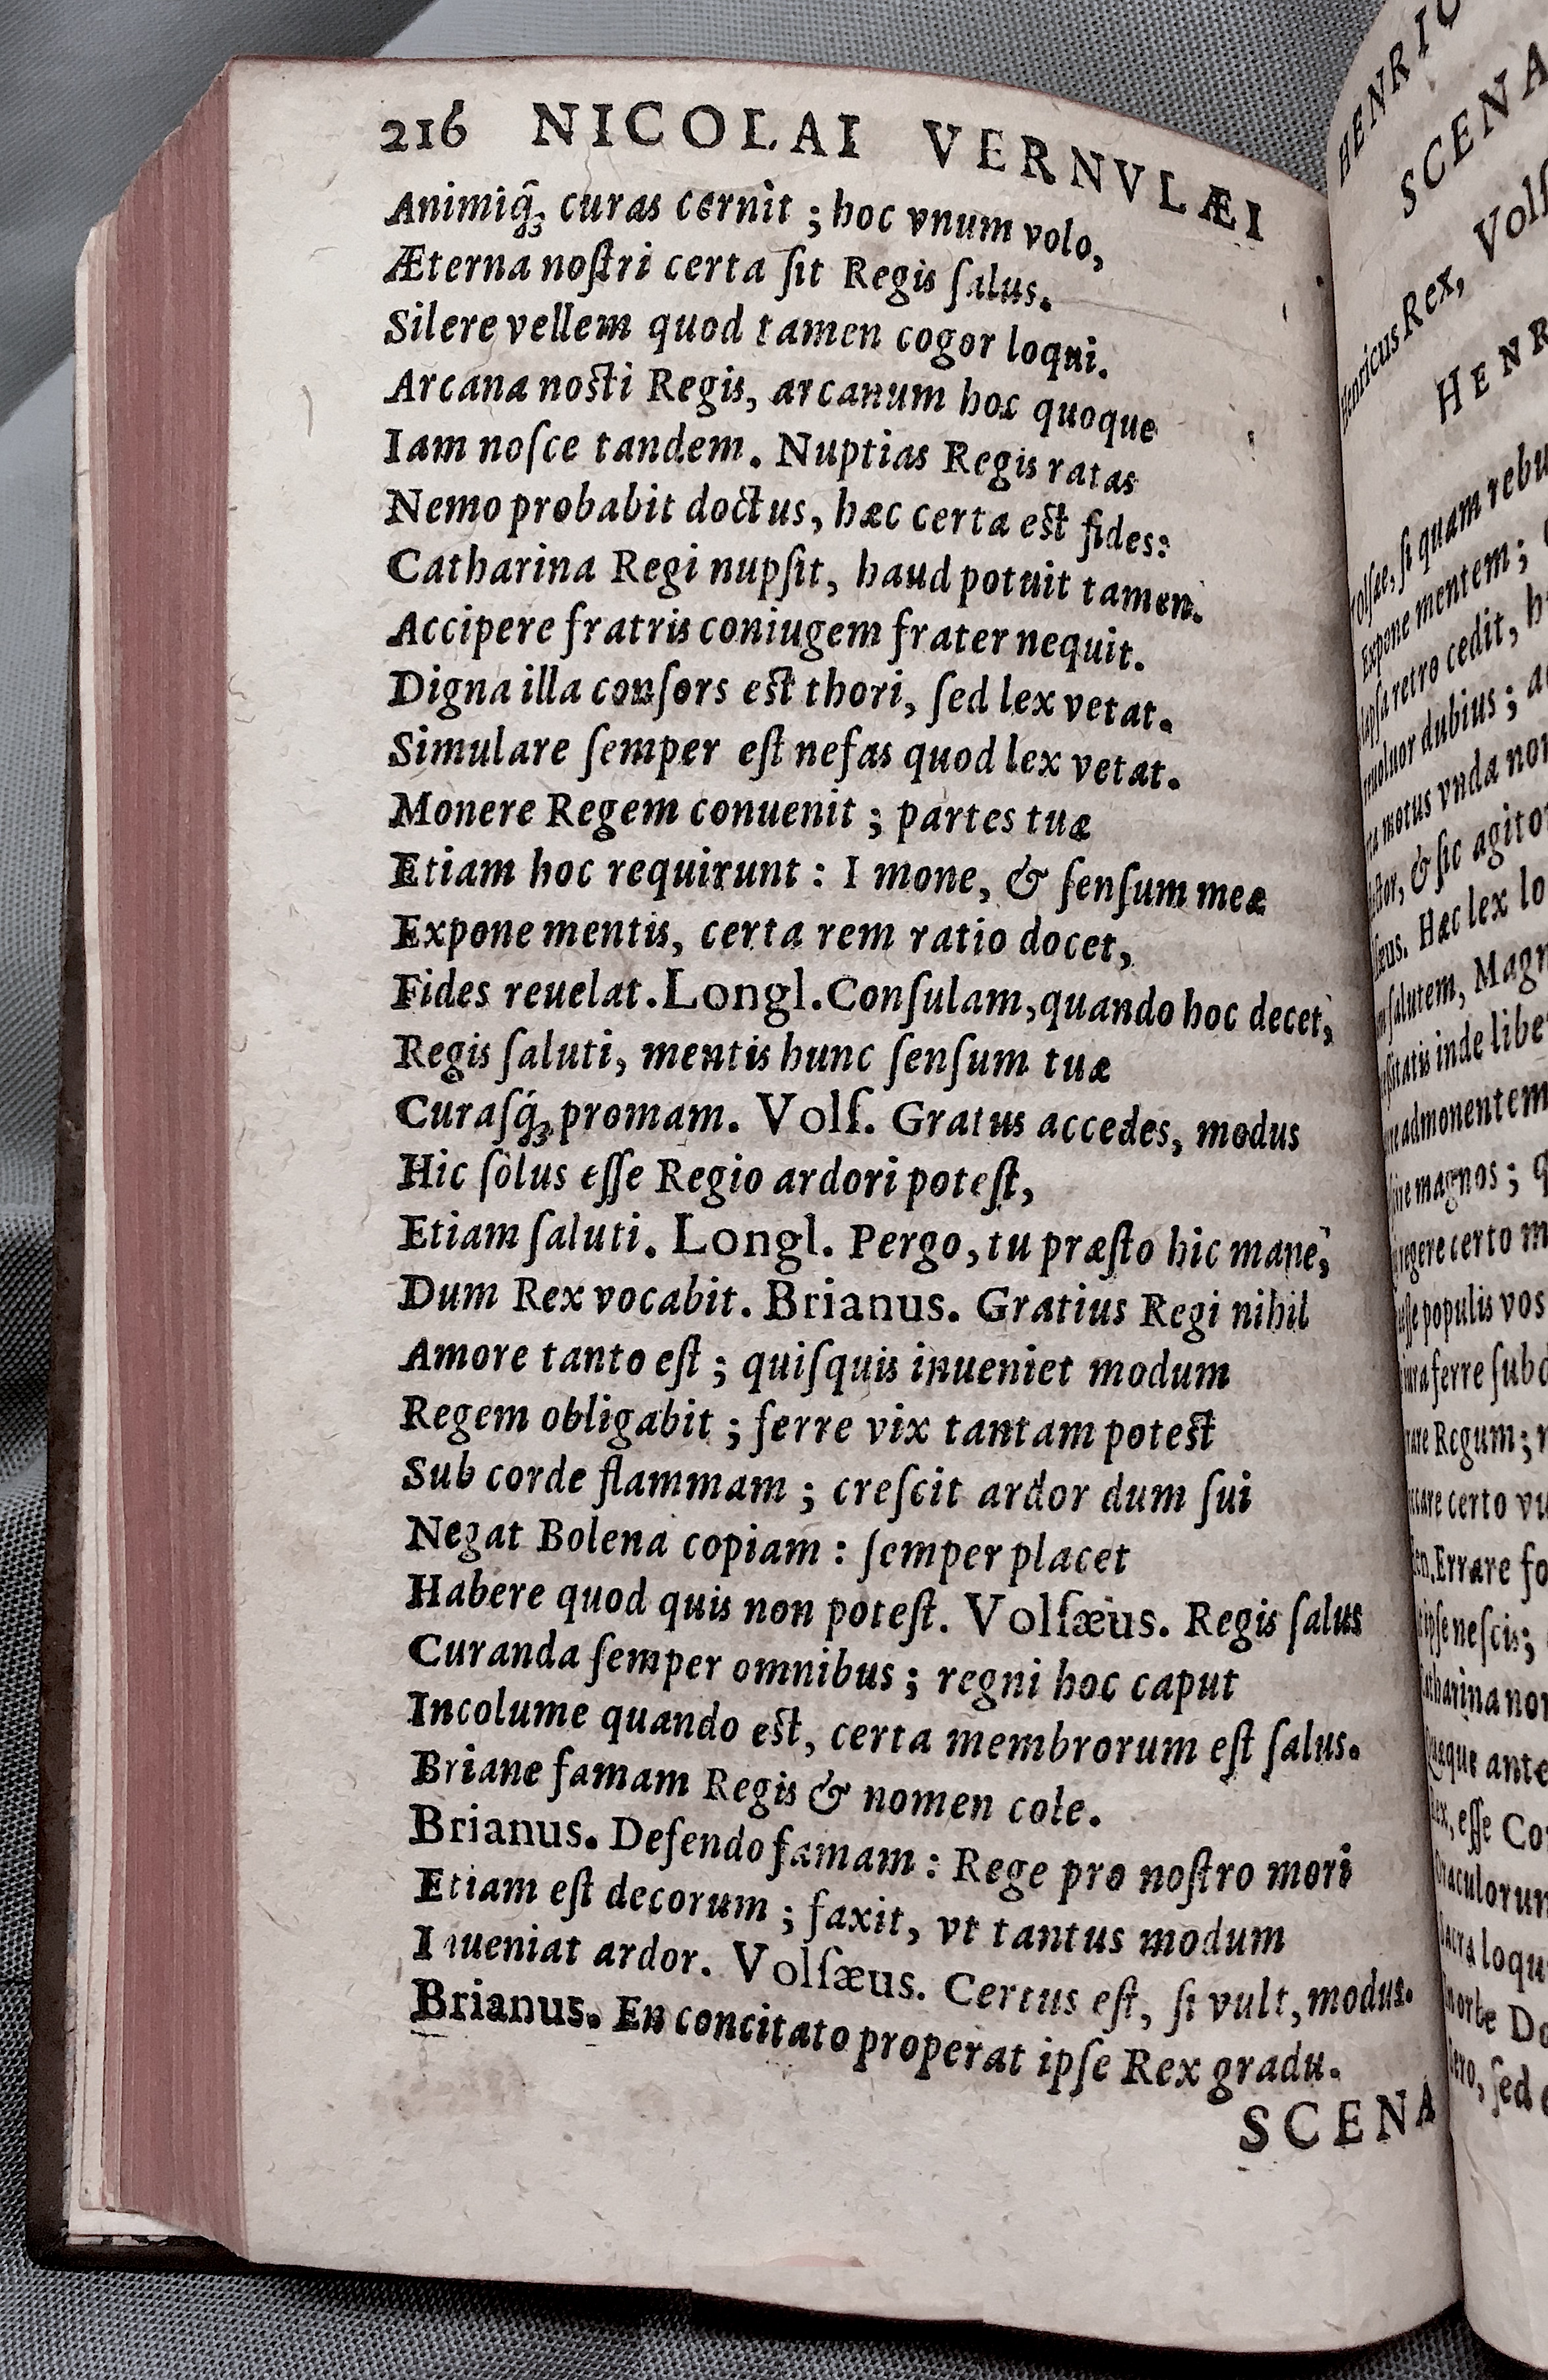 216 NICOLAI VERNVLÆI
Animiq́ꝫ curas cernit ; hoc vnum volo,
Æterna noſtri certa ſit Regis ſalus.
Silere vellem quod tamen cogor loqui.
Arcana noſti Regis, arcanum hoc quoque
Iam noſce tandem. Nuptias Regis ratas
Nemo probabit doctus, hæc certa eſt fides:
Catharina Regi nupſit, haud potuit tamen.
Accipere fratris coniugem frater nequit.
Digna illa conſors eſt thori, ſed lex vetat.
Simulare ſemper eſt nefas quod lex vetat.
Monere Regem conuenit ; partes tuæ
Etiam hoc requirunt : I mone, & ſenſum meæ
Expone mentis, certa rem ratio docet,
Fides reuelat. Longl. Conſulam, quando hoc decet,
Regis ſaluti, mentis hunc ſenſum tuæ
Curaſq́ꝫ promam. Volſ. Gratus accedes, modus
Hic ſolus eſſe Regio ardori poteſt,
Etiam ſaluti. Longl. Pergo, tu præſto hic mane,
Dum Rex vocabit. Brianus. Gratius Regi nihil
Amore tanto eſt ; quiſquis inueniet modum
Regem obligabit ; ferre vix tantam poteſt
Sub corde flammam ; creſcit ardor dum ſui
Negat Bolena copiam : ſemper placet
Habere quod quis non poteſt. Volſæus. Regis ſalus
Curanda ſemper omnibus ; regni hoc caput
Incolume quando eſt, certa membrorum eſt ſalus.
Briane famam Regis & nomen cole.
Brianus. Defendo famam : Rege pro noſtro mori
Etiam eſt decorum ; faxit, vt tantus modum
Inueniat ardor. Volſæus. Certus eſt, ſi vult, modus.
Brianus. En concitato properat ipſe Rex gradu.
SCENA
HENRIC
SCENA
Henricus Rex, Volſ
HENR
ſi quam rebu
Expone mentem ;
retro cedit, h
dubius ; a
motus vnda non
& ſic agitor
Hæc lex lo
ſalutem, Magn
inde libe
admonentem
magnos ; q
regere certo m
populis vos
ferre ſub
Regum ;
certo vu
Errare fo
ipſe neſcis ;
non
ante
eſſe Co

loqu
Do
ſed